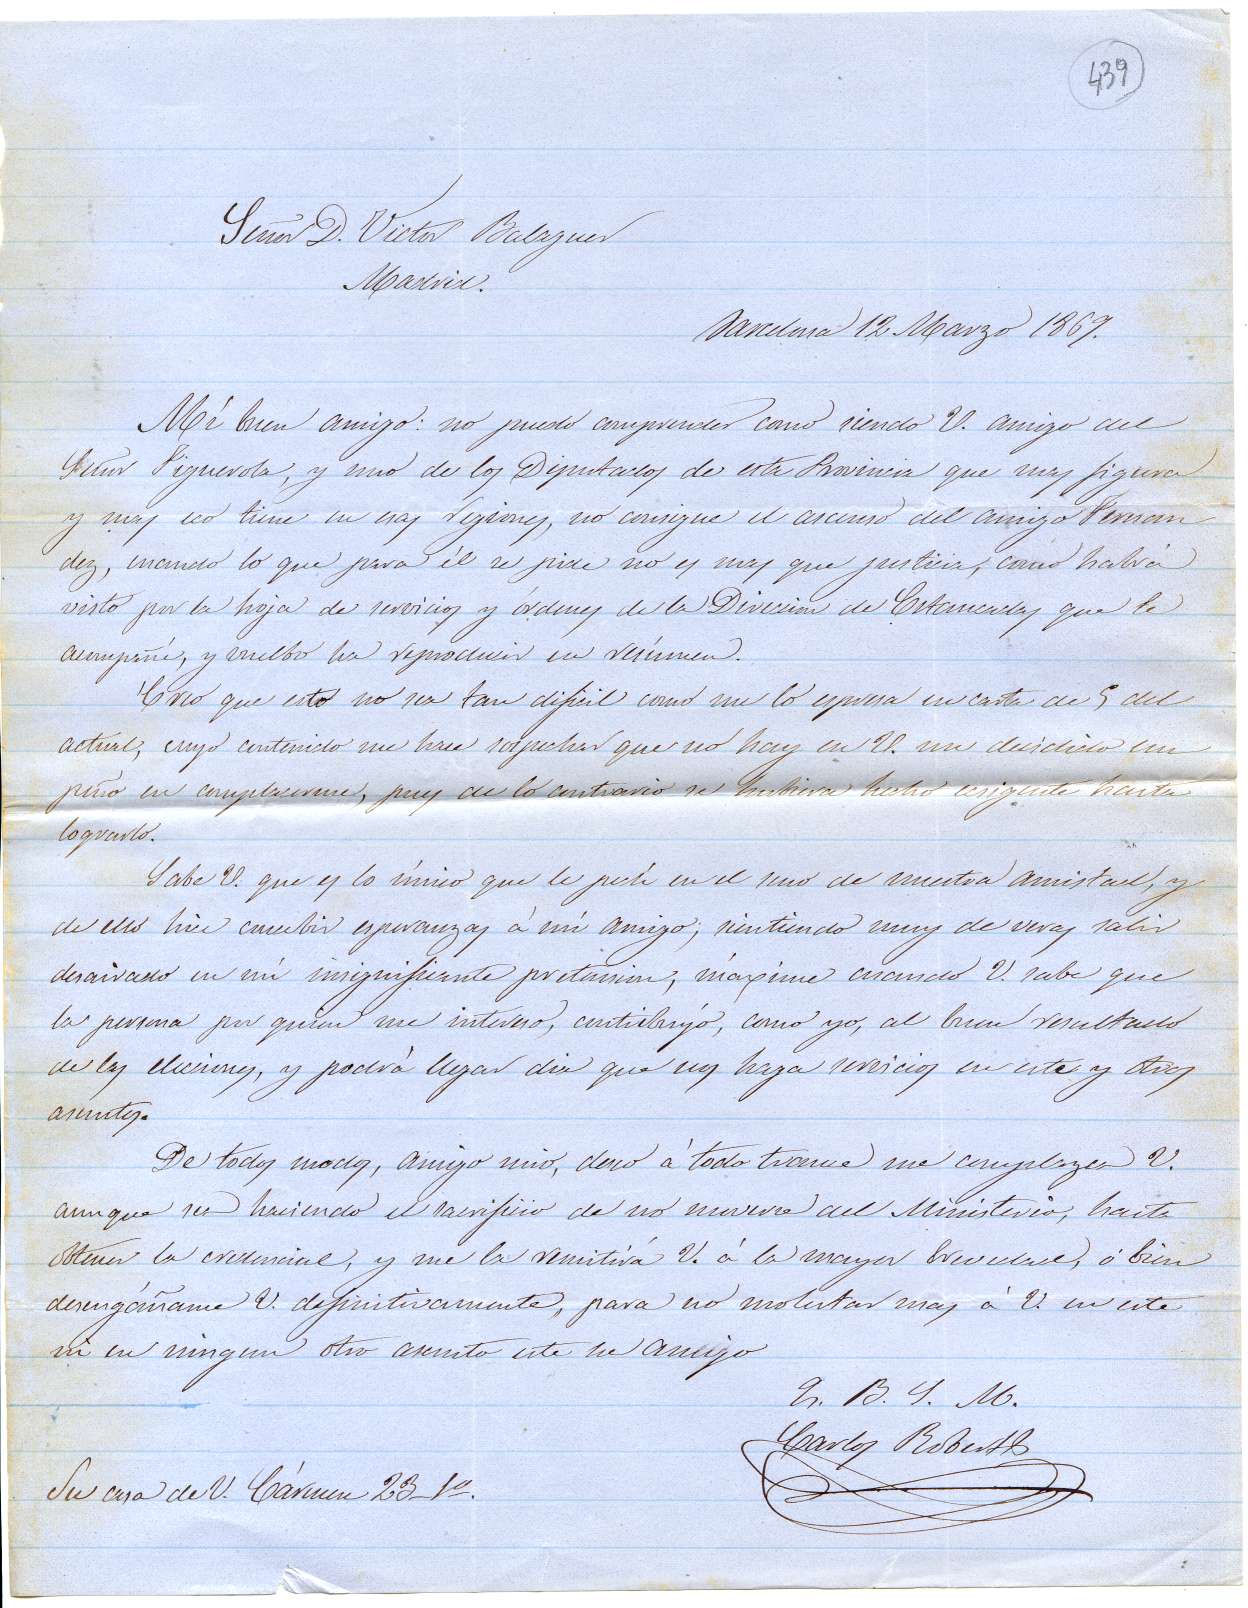 439
Señor D. Victor Balaguer
Madrid.
Barcelona 12 Marzo 1869.
Mi buen amigo: no puedo comprender como siendo V. amigo del
Señor Figuerola, y uno de los Diputados de esta Provincia que mas figura
y mas eco tiene en esas regiones, no consigue el ascenso del amigo Fernan
dez, cuando lo que para él se pide no es mas que justicia, como habrá
visto por la hoja de servicios y órdenes de la Direccion de Estancadas que le
acompañé, y vuelvo ha reproducir en resúmen.
Creo que esto no sea tan dificil como me lo espresa en carta de 5 del
actual, cuyo contenido me hace sospechar que no hay en V. un decidido em
peño en complacerme, pues de lo contrario se hubiera hecho ecsigente hasta
lograrlo.
Sabe V. que es lo único que le pedí en el seno de nuestra amistad, y
de ello hice concebir esperanzas á mi amigo; sintiendo muy de veras salir
desairado en mi insignificante pretension, máxime cuando V. sabe que
la persona por quien me intereso, contribuyó, como yo, al buen resultado
de las elecciones, y podrá llegar dia que nos haga servicios en este y otros
asuntos.
De todos modos, amigo mio, deseo á todo trance me complazca V.
aunque sea haciendo el sacrificio de no moverse del Ministerio, hasta
obtener la credencial, y me la remitirá V. á la mayor brevedad, ó bien
desengáñame V. definitivamente, para no molestar mas á V. en este
ni en ningun otro asunto este su amigo
Q. B. S. M.
Carlos Robert
Su casa de V. Cármen 23-1º.